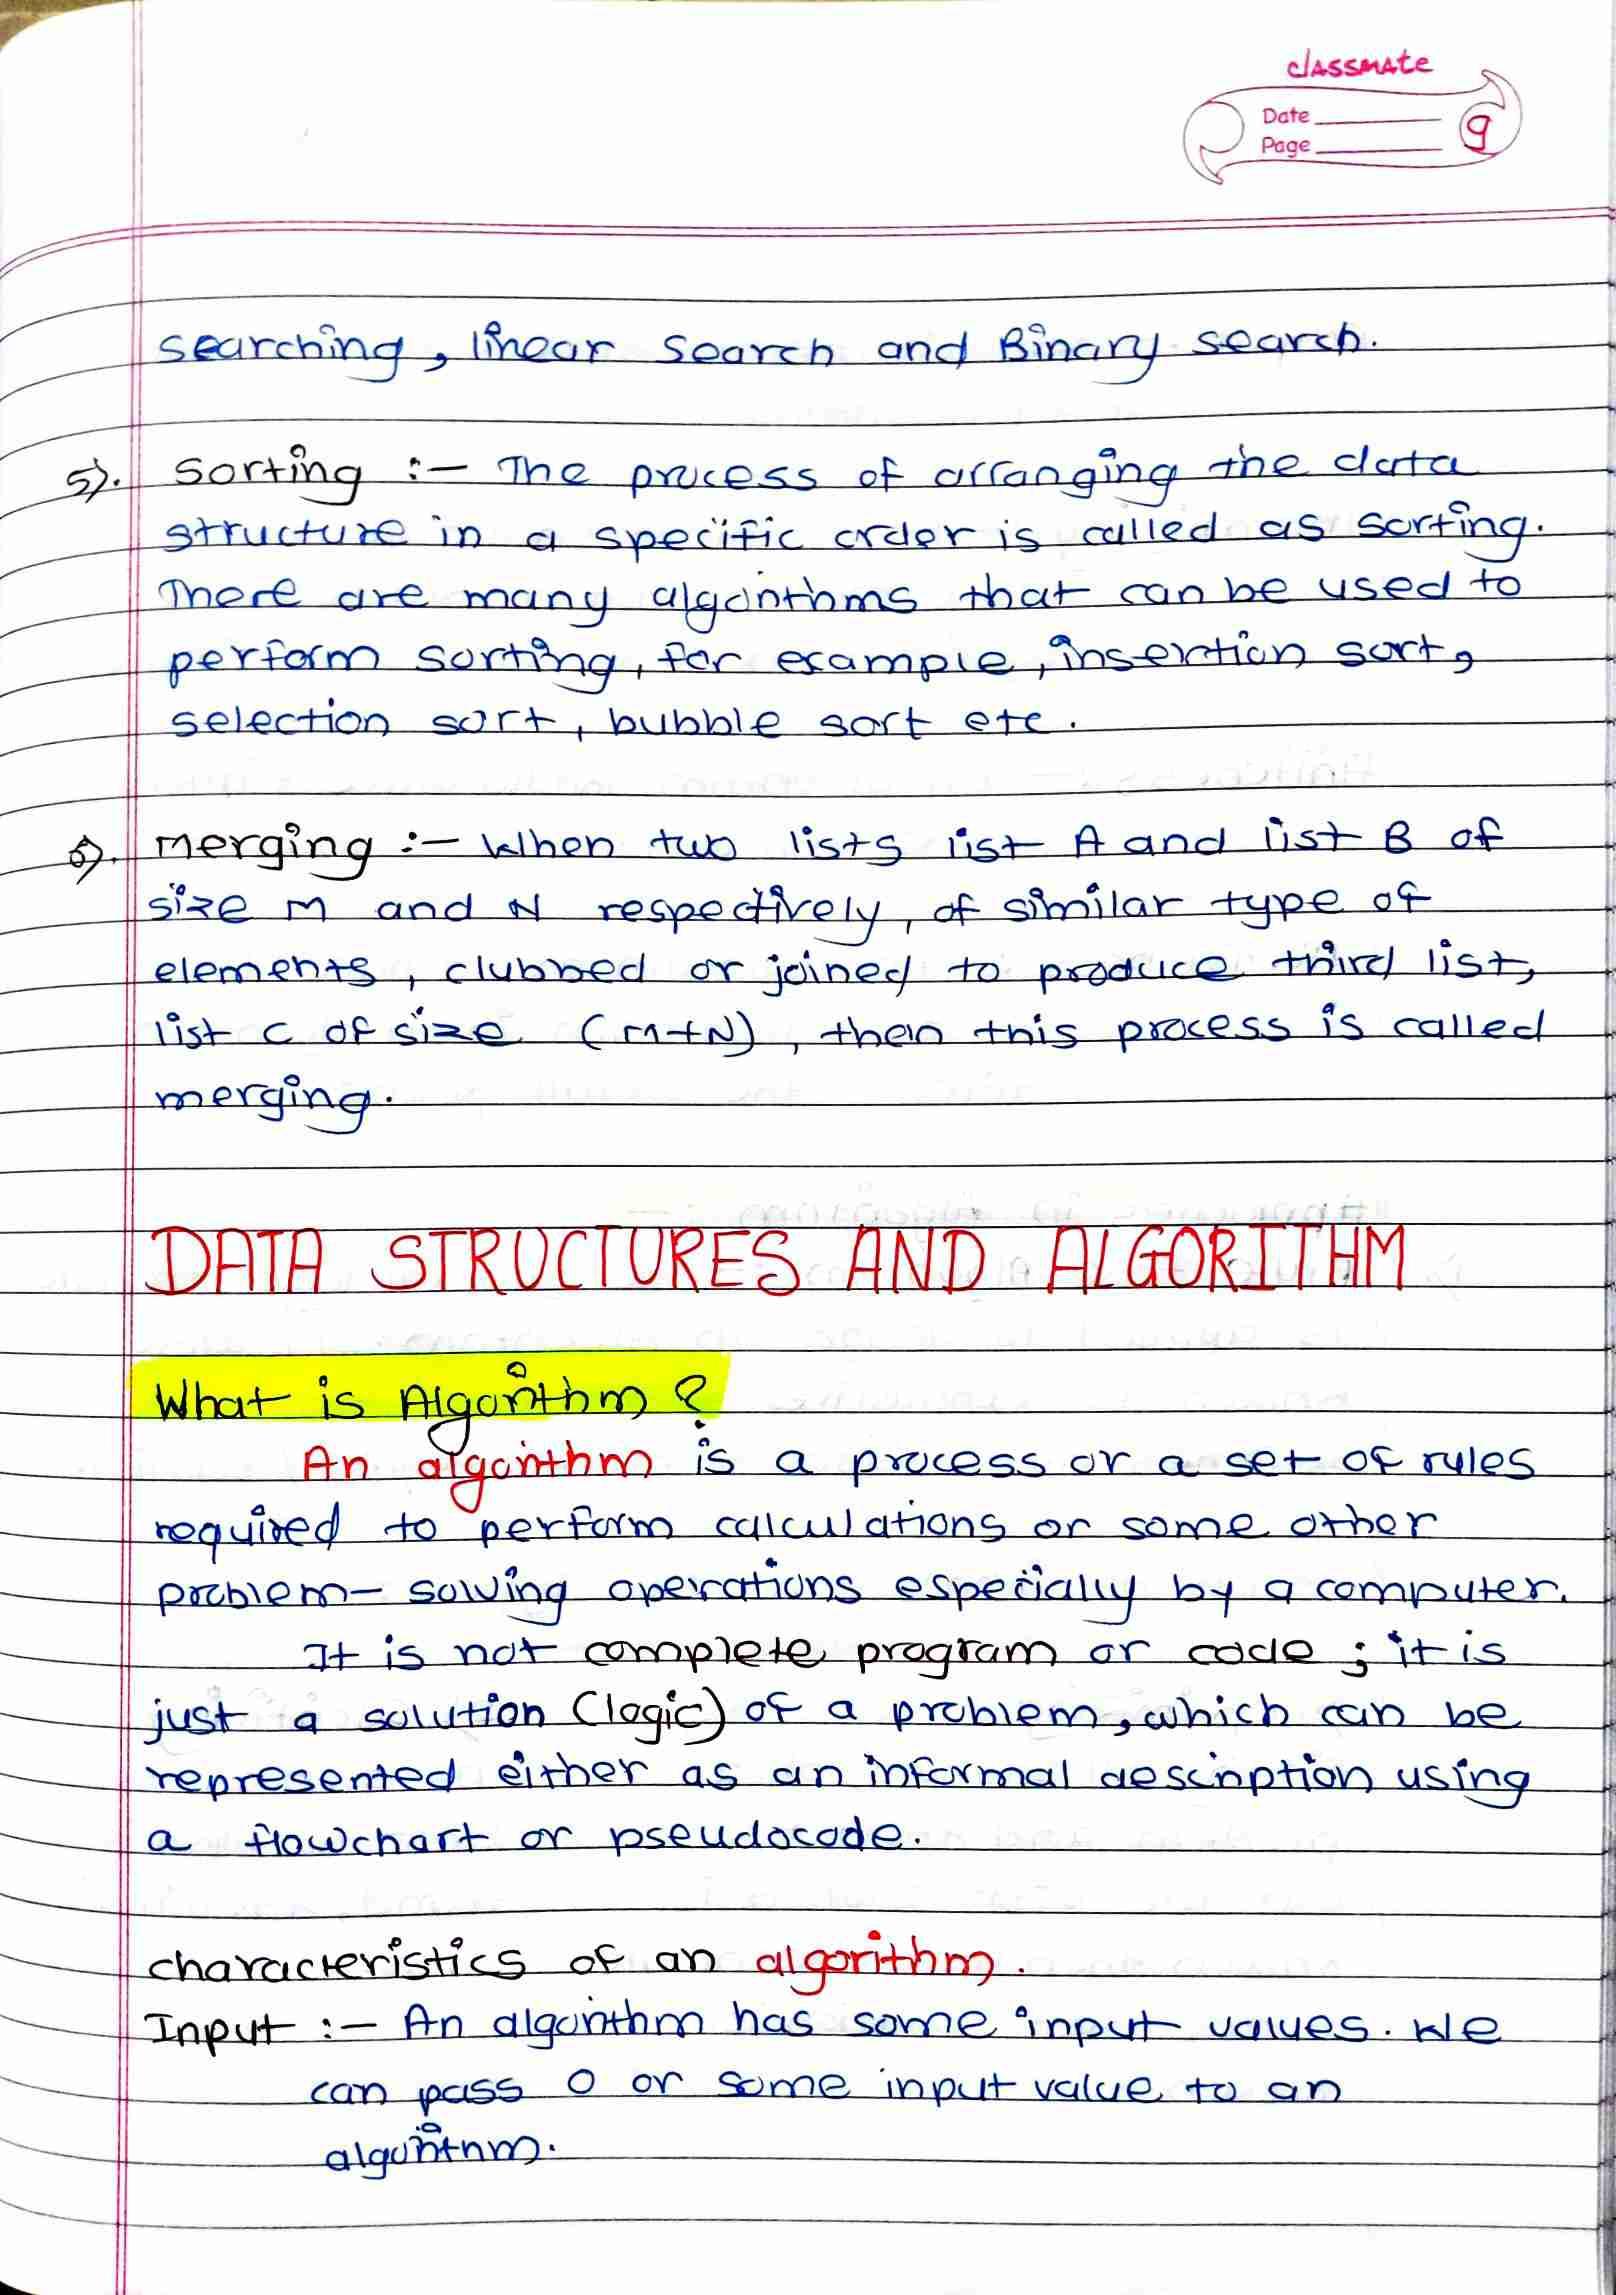 classmate
Date
Page
9
searching, linear search and Binary search.
5). Sorting :- The process of arranging the data
structure in a specific order is called as sorting.
There are many algorithms that can be used to
perform sorting, for example, insertion sort,
selection sort, bubble sort etc.
6). Merging :- When two lists list A and list B of
size M and N respectively, of similar type of
elements, clubbed or joined to produce third list,
list C of size (M+N), then this process is called
merging.
DATA STRUCTURES AND ALGORITHM
What is Algorithm ?
An algorithm is a process or a set of rules
required to perform calculations or some other
problem-solving operations especially by a computer.
It is not complete program or code ; it is
just a solution (logic) of a problem, which can be
represented either as an informal description using
a flowchart or pseudocode.
characteristics of an algorithm.
Input :- An algorithm has some input values. We
can pass 0 or some input value to an
algorithm.